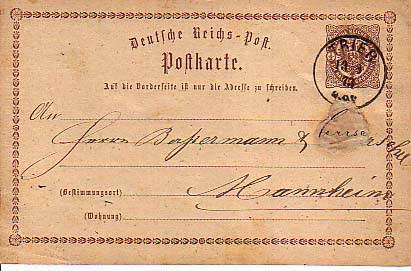 Deutsche Reichs-Post.
Postkarte.
Auf die Vorderseite ist nur die Adresse zu schreiben.
TRIER
An
Herrn &
Mannheim
(Bestimmungsort)
(Wohnung)